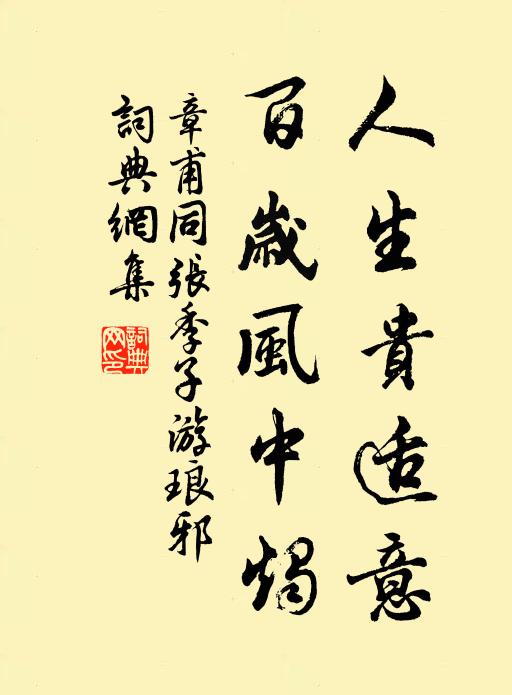 人生貴适意
百歲風中燭
章甫同張季子游琅邪
詞典網集
詞典
网印